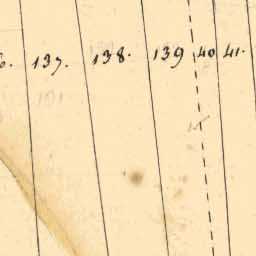 6. 137. 138. 139 40 41.